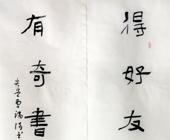 得好友
有奇書